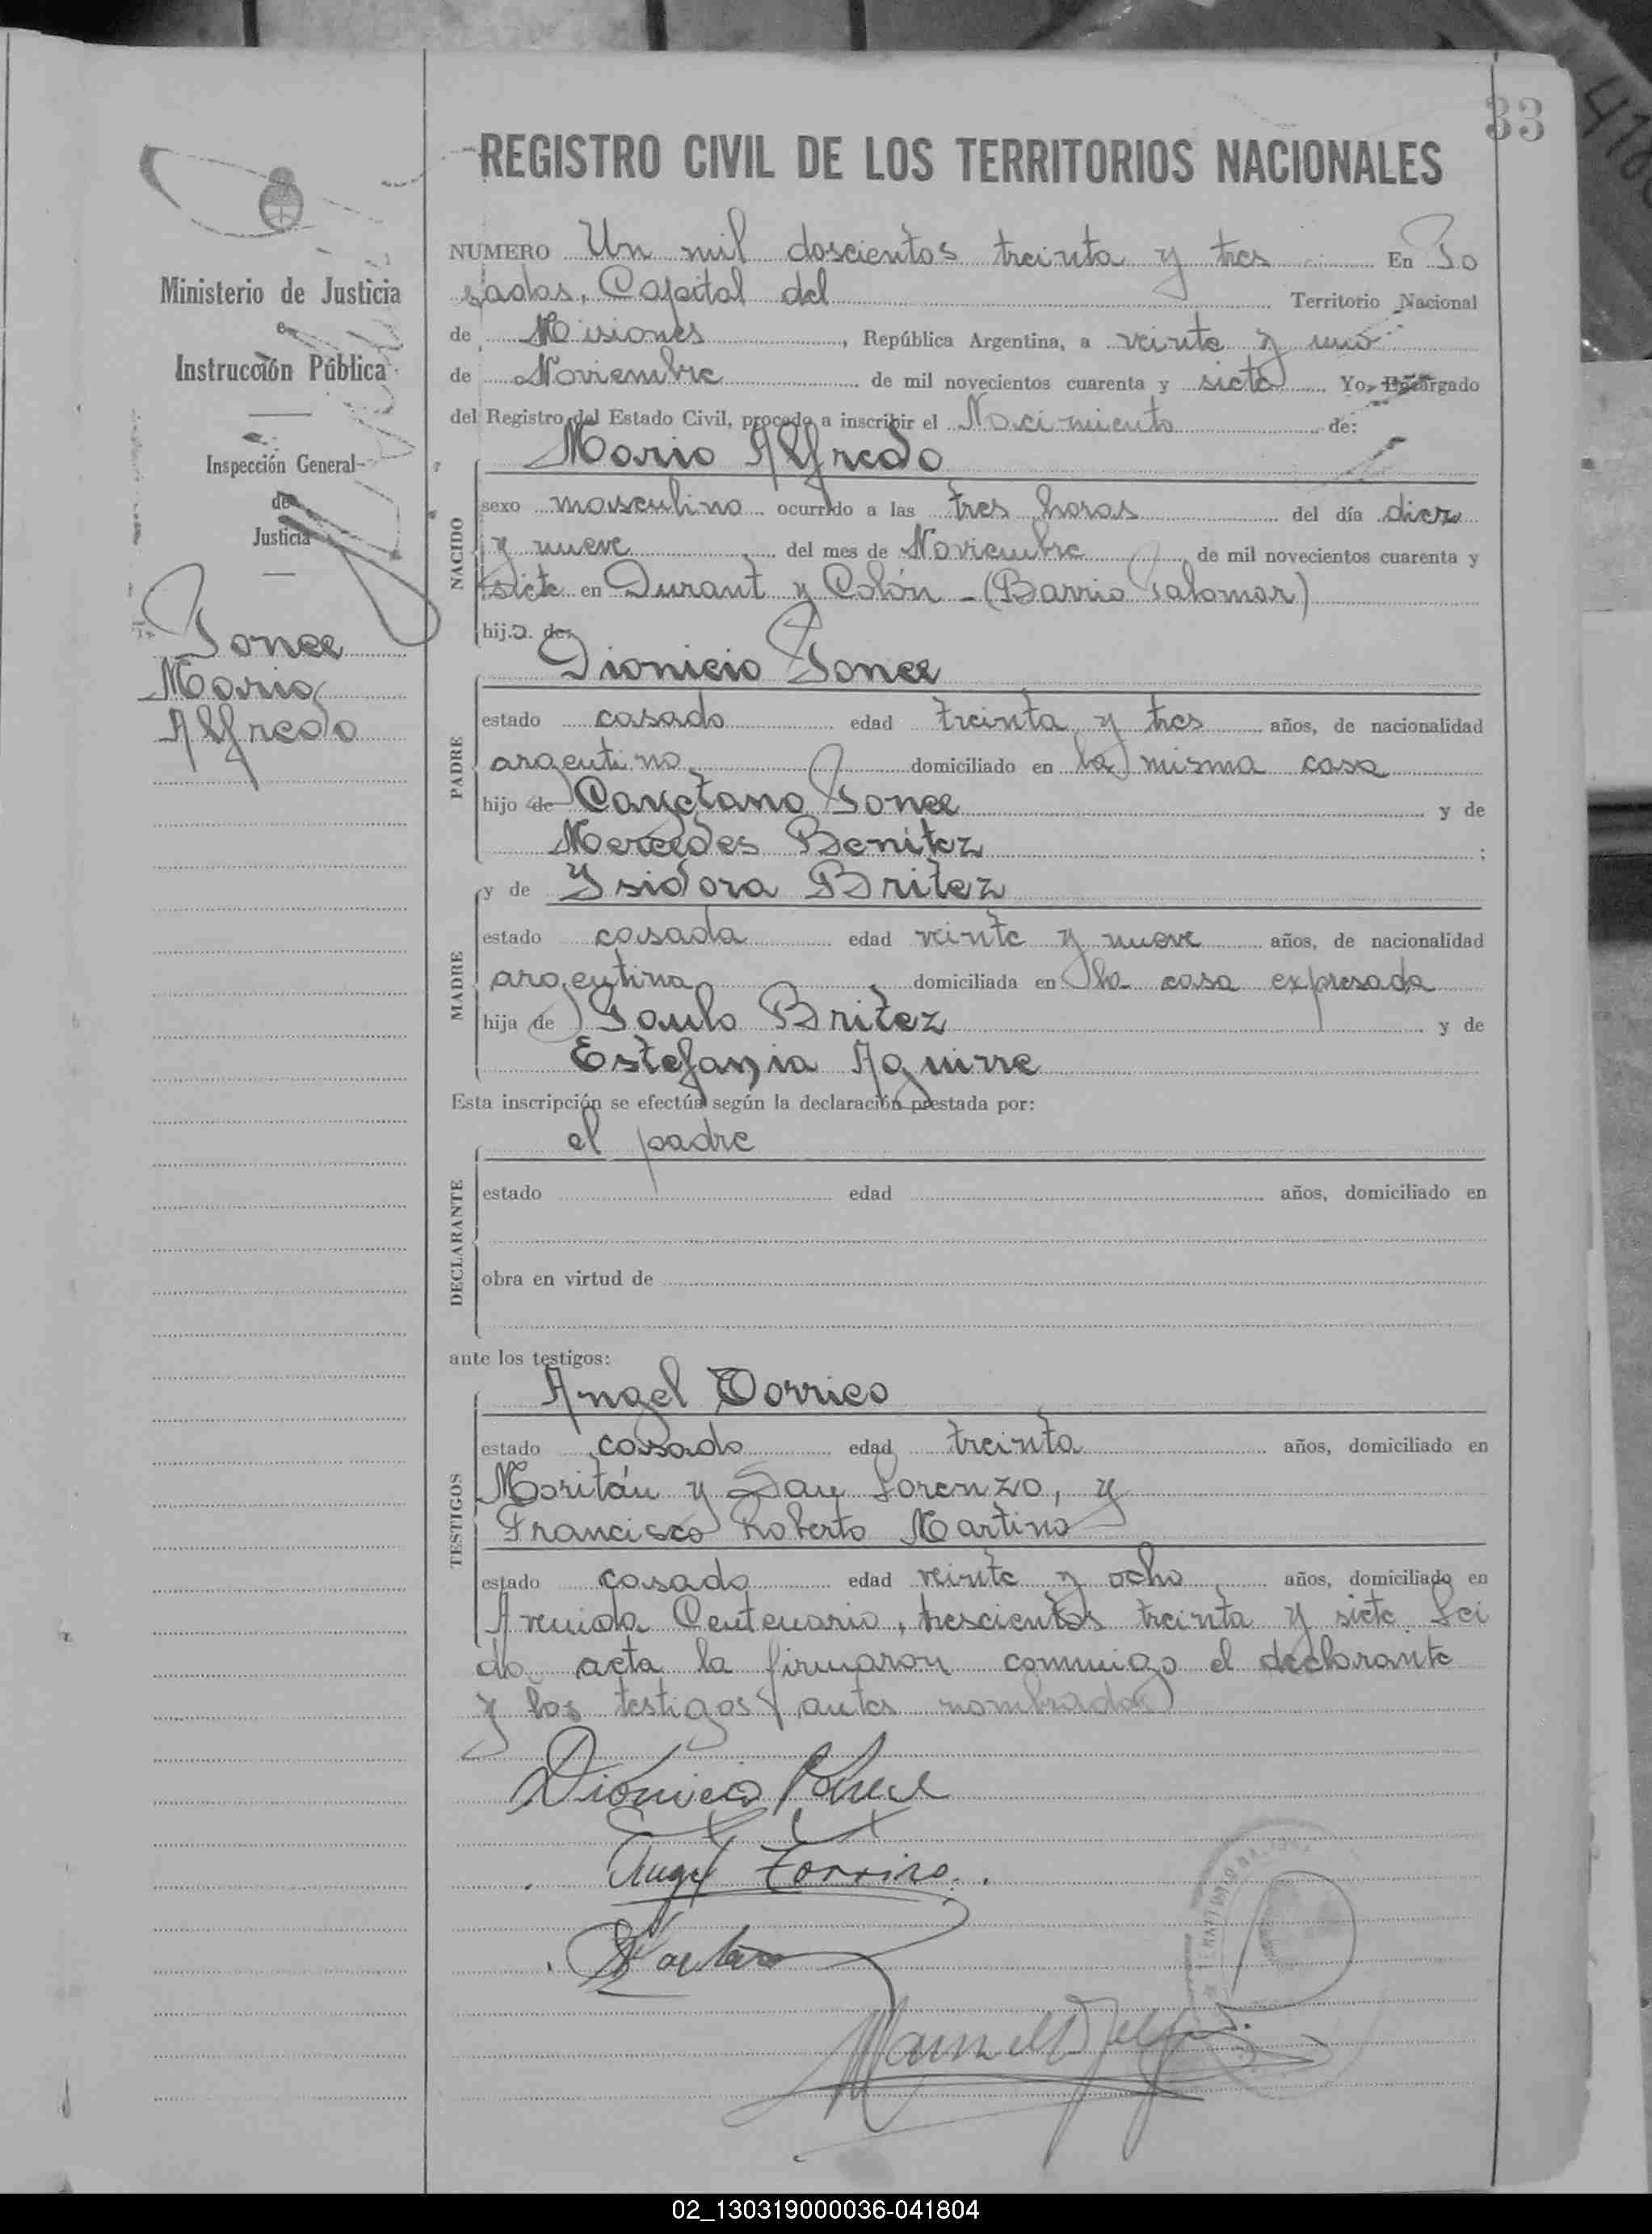 33
REGISTRO CIVIL DE LOS TERRITORIOS NACIONALES
Ministerio de Justicia
e
Instrucción Pública
Inspección General
de
Justicia
Ponce
Mario
Alfredo
NUMERO Un mil doscientos treinta y tres En Po
sadas, Capital del Territorio Nacional
de Misiones, República Argentina, a veinte y uno
de Noviembre de mil novecientos cuarenta y siete Yo, Encargado
del Registro del Estado Civil, procedo a inscribir el Nacimiento de:
NACIDO
Mario Alfredo
sexo masculino ocurrido a las tres horas del día diez
y nueve del mes de Noviembre de mil novecientos cuarenta y
siete en Durant y Colón - (Barrio Palomar)
hijo de:
PADRE
Dionicio Ponce
estado casado edad treinta y tres años, de nacionalidad
argentino domiciliado en la misma casa
hijo de Cayetano Ponce y de
Mercedes Benitez ;
MADRE
y de Ysidora Britez
estado casada edad veinte y nueve años, de nacionalidad
argentina domiciliada en la casa expresada
hija de Paulo Britez y de
Estefania Aguirre
Esta inscripción se efectúa según la declaración prestada por:
DECLARANTE
el padre
estado edad años, domiciliado en
obra en virtud de
ante los testigos:
TESTIGOS
Angel Torrico
estado casado edad treinta años, domiciliado en
Moritán y San Lorenzo, y
Francisco Roberto Martino
estado casado edad veinte y ocho años, domiciliado en
Avenida Centenario, trescientos treinta y siete. Lei
do acta la firmaron conmigo el declarante
y los testigos antes nombrados
Dionicio Ponce
Angel Torrico
02_130319000036-041804